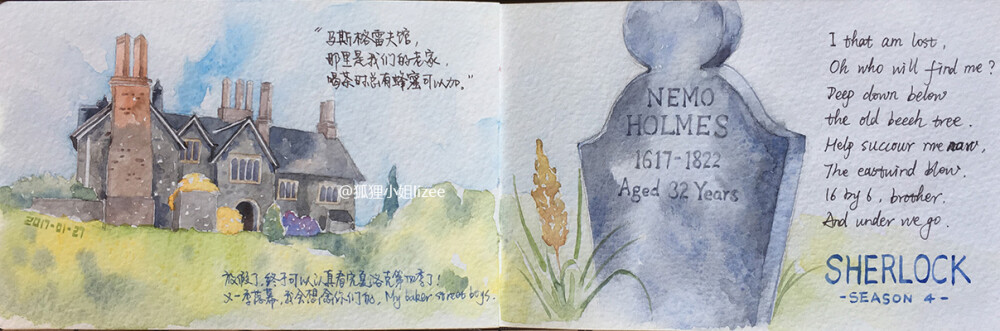 "马斯格雷夫馆,
那里是我们的老家,
喝茶时总有蜂蜜可以加。"
@狐狸小姐lizee
2017-01-27
放假了,终于可以认真看完夏洛克第四季了!
又一季落幕,我会想念你们哒, My baker street boys.
NEMO
HOLMES
1617-1822
Aged 32 Years
I that am lost,
Oh who will find me?
Deep down below
the old beech tree.
Help succour me now,
The eastwind blow.
16 by 6, brother.
And under we go.
SHERLOCK
-SEASON 4-